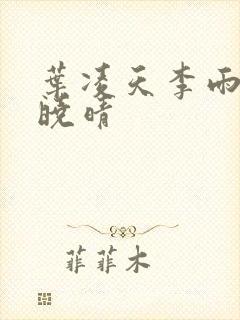 葉凌天李雨
晚晴
菲菲木